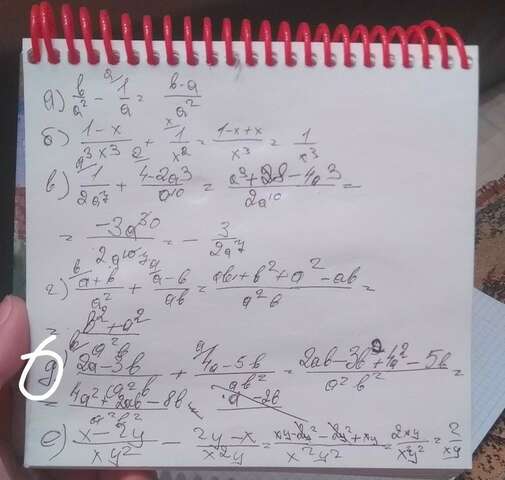 а) b/a² - 1/a = (b-a)/a²
б) (1-x)/x³ + 1/x² = (1-x+x)/x³ = 1/x³
в) 1/2a⁷ + (4-2a³)/a¹⁰ = (a³+8-4a³)/2a¹⁰ =
= -3a³/2a¹⁰ = - 3/2a⁷
г) (a+b)/a² + (a-b)/ab = (ab+b²+a²-ab)/a²b =
= (b²+a²)/a²b
д) (2a-3b)/a²b + (4a-5b)/ab² = (2ab-3b²+4a²-5b)/a²b² =
= (4a²+2ab-8b)/a²b²
е) (x-2y)/xy² - (2y-x)/x²y = (xy-2y²-2y²+xy)/x²y² = 2xy/x²y² = 2/xy